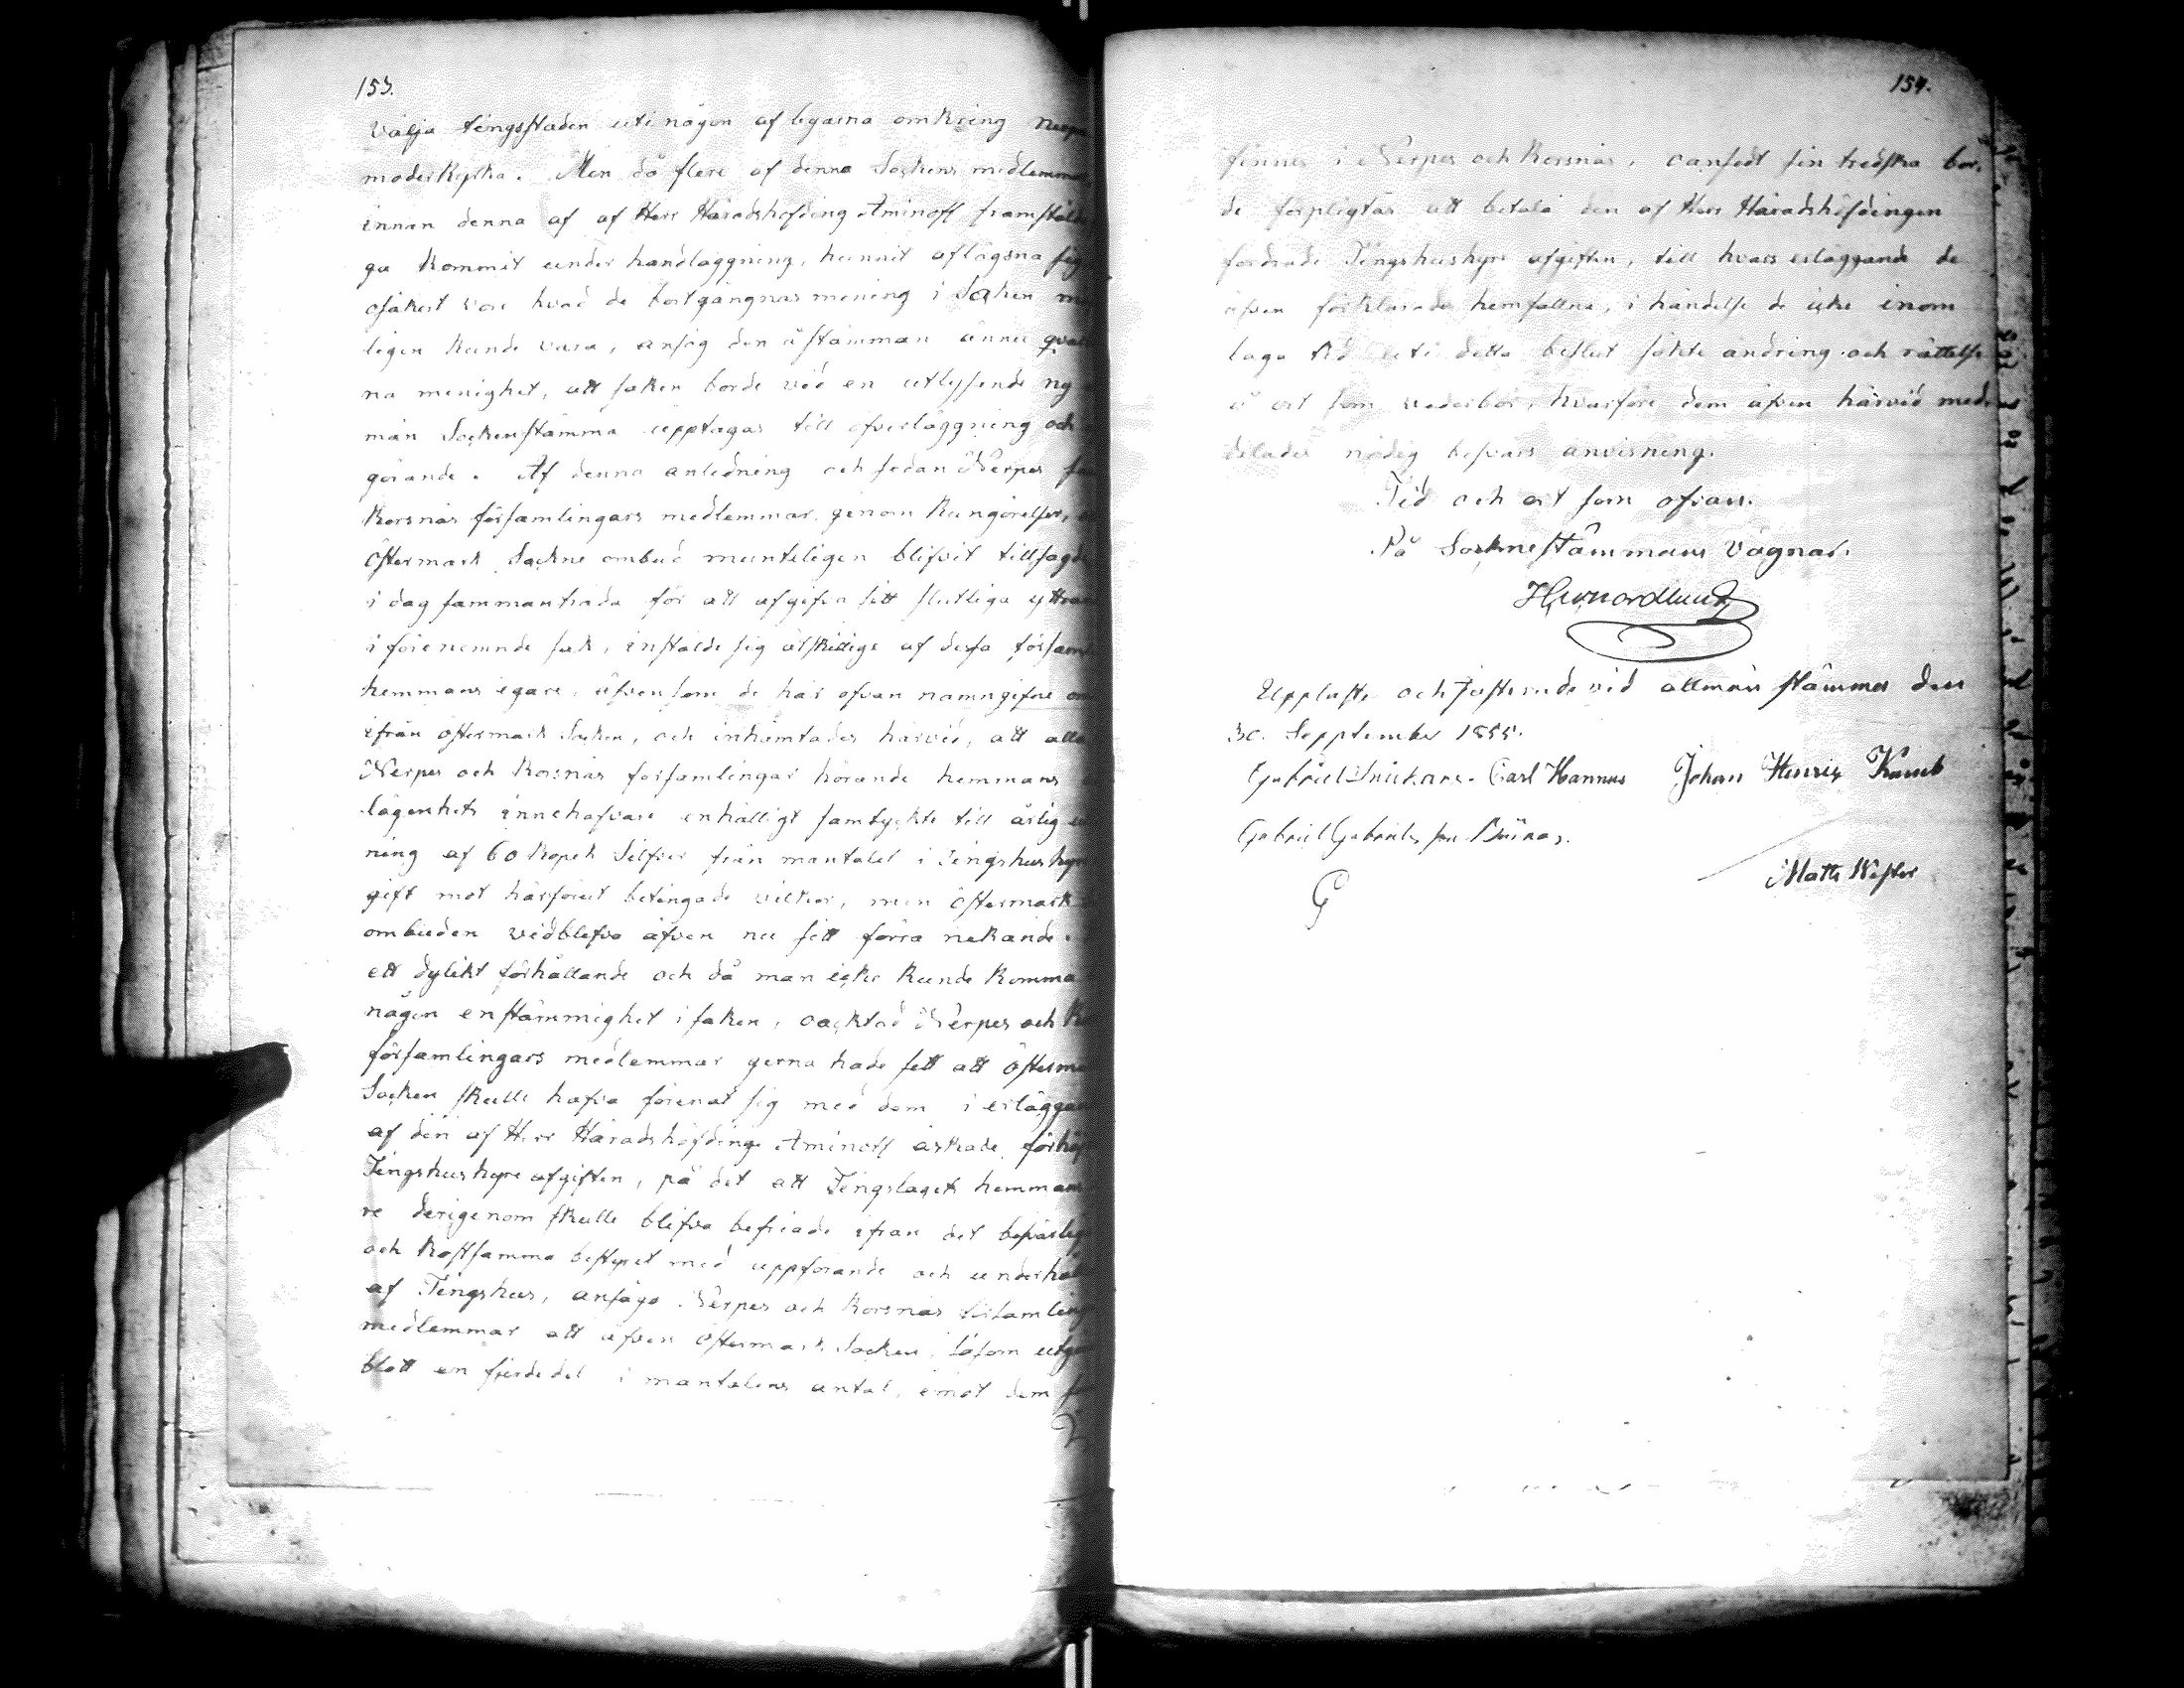 153.
välja tingsstaden uti någon af byarna omkring
moderkyrka. Men då flere af denna Sockens medlemmar
innan denna af af Herr Häradshöfding Aminoff framstäld
ga kommit under handläggning, hunnit aflägsna sig
osäkert vore hvad de bortgångnas mening i Saken
ligen kunde vara, ansåg den å stämman ännu qvar
na menighet, att saken borde vid en utlysende ny
män Sockenstämma upptagas till öfverläggning och
görande. Af denna anledning och sedan Nerpes
Korsnäs församlingars medlemmar genom kungörelser,
Östermark Sockne ombud munteligen blifvit tillsagde
i dag sammanträda för att afgifva sitt slutliga yttran
i förenemnde sak, instälde sig åtskillige af dessa församl
hemmans egare, äfvensom de här ofvan namngifne om
ifrån Östermark Socken, och inhämtades härvid, att alla
Nerpes och Korsnäs församlingar hörande hemmans
lägenhets innehafvare enhälligt samtyckte till årlig
ning af 60 kopek Silfver från mantalet i Tingshushyre
gift mot härförut betingade vilkor, men Östermark
ombuden vidblefvo äfven nu sitt förra nekande.
ett dylikt förhållande och då man icke kunde komma
någon enstämmighet i saken, oacktad Nerpes och K
församlingars medlemmar gerna hade sett att Österma
Socken skulle hafva förenat sig med dem i erläggan
af den af Herr Häradshöfding Aminoff äskade förhöj
Tingshushyre afgiften, på det att Tingslagets hemmans
re derigenom skulle blifva befriade ifrån det besvärlig
och kostsamma bestyret med uppförande och underhåll
af Tingshus, ansågo Nerpes och Korsnäs församling
medlemmar att äfven Östermark Socken, såsom utgö
blott en fjerdedel i mantalens antal, emot dem
154.
finnes i Nerpes och Korsnäs, oansedt sin tredska bor,
de förpligtas att betala den af Herr Häradshöfdingen
fordrade Tingshushyre afgiften, till hvars erläggande de
äfven förklarades hemfallna, i händelse de icke inom
laga tid uti detta beslut sökte ändring och rättelse
å ort som vederbör, hvarföre dem äfven härvid med,
delades nödig besvärs anvisning.
Tid och ort som ofvan.
På Sockenestämmans vägnar.
Nordlund
Uppläste och justerade vid allmän stämma den
30. September 1855.
Gabriel Carl Hannus Johan Henrik
Gabriel Gabriels son
G
Matts Wester